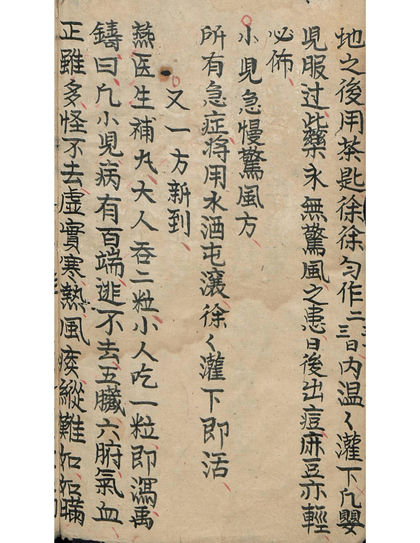 地之後用茶匙徐徐勻作二三日內温〻灌下凢嬰
児服过此藥永無驚風之患日後出痘麻豆亦輕
必佈
小児急慢驚風方
所有急症将用水酒屯瀼徐〻灌下即活
又一方新到
燕医生補丸大人吞二粒小人吃一粒即瀉禹
鑄曰凢小児病有百端逃不去五臟六腑氣血
正雖多怪不去虛實寒熱風痰縱難如